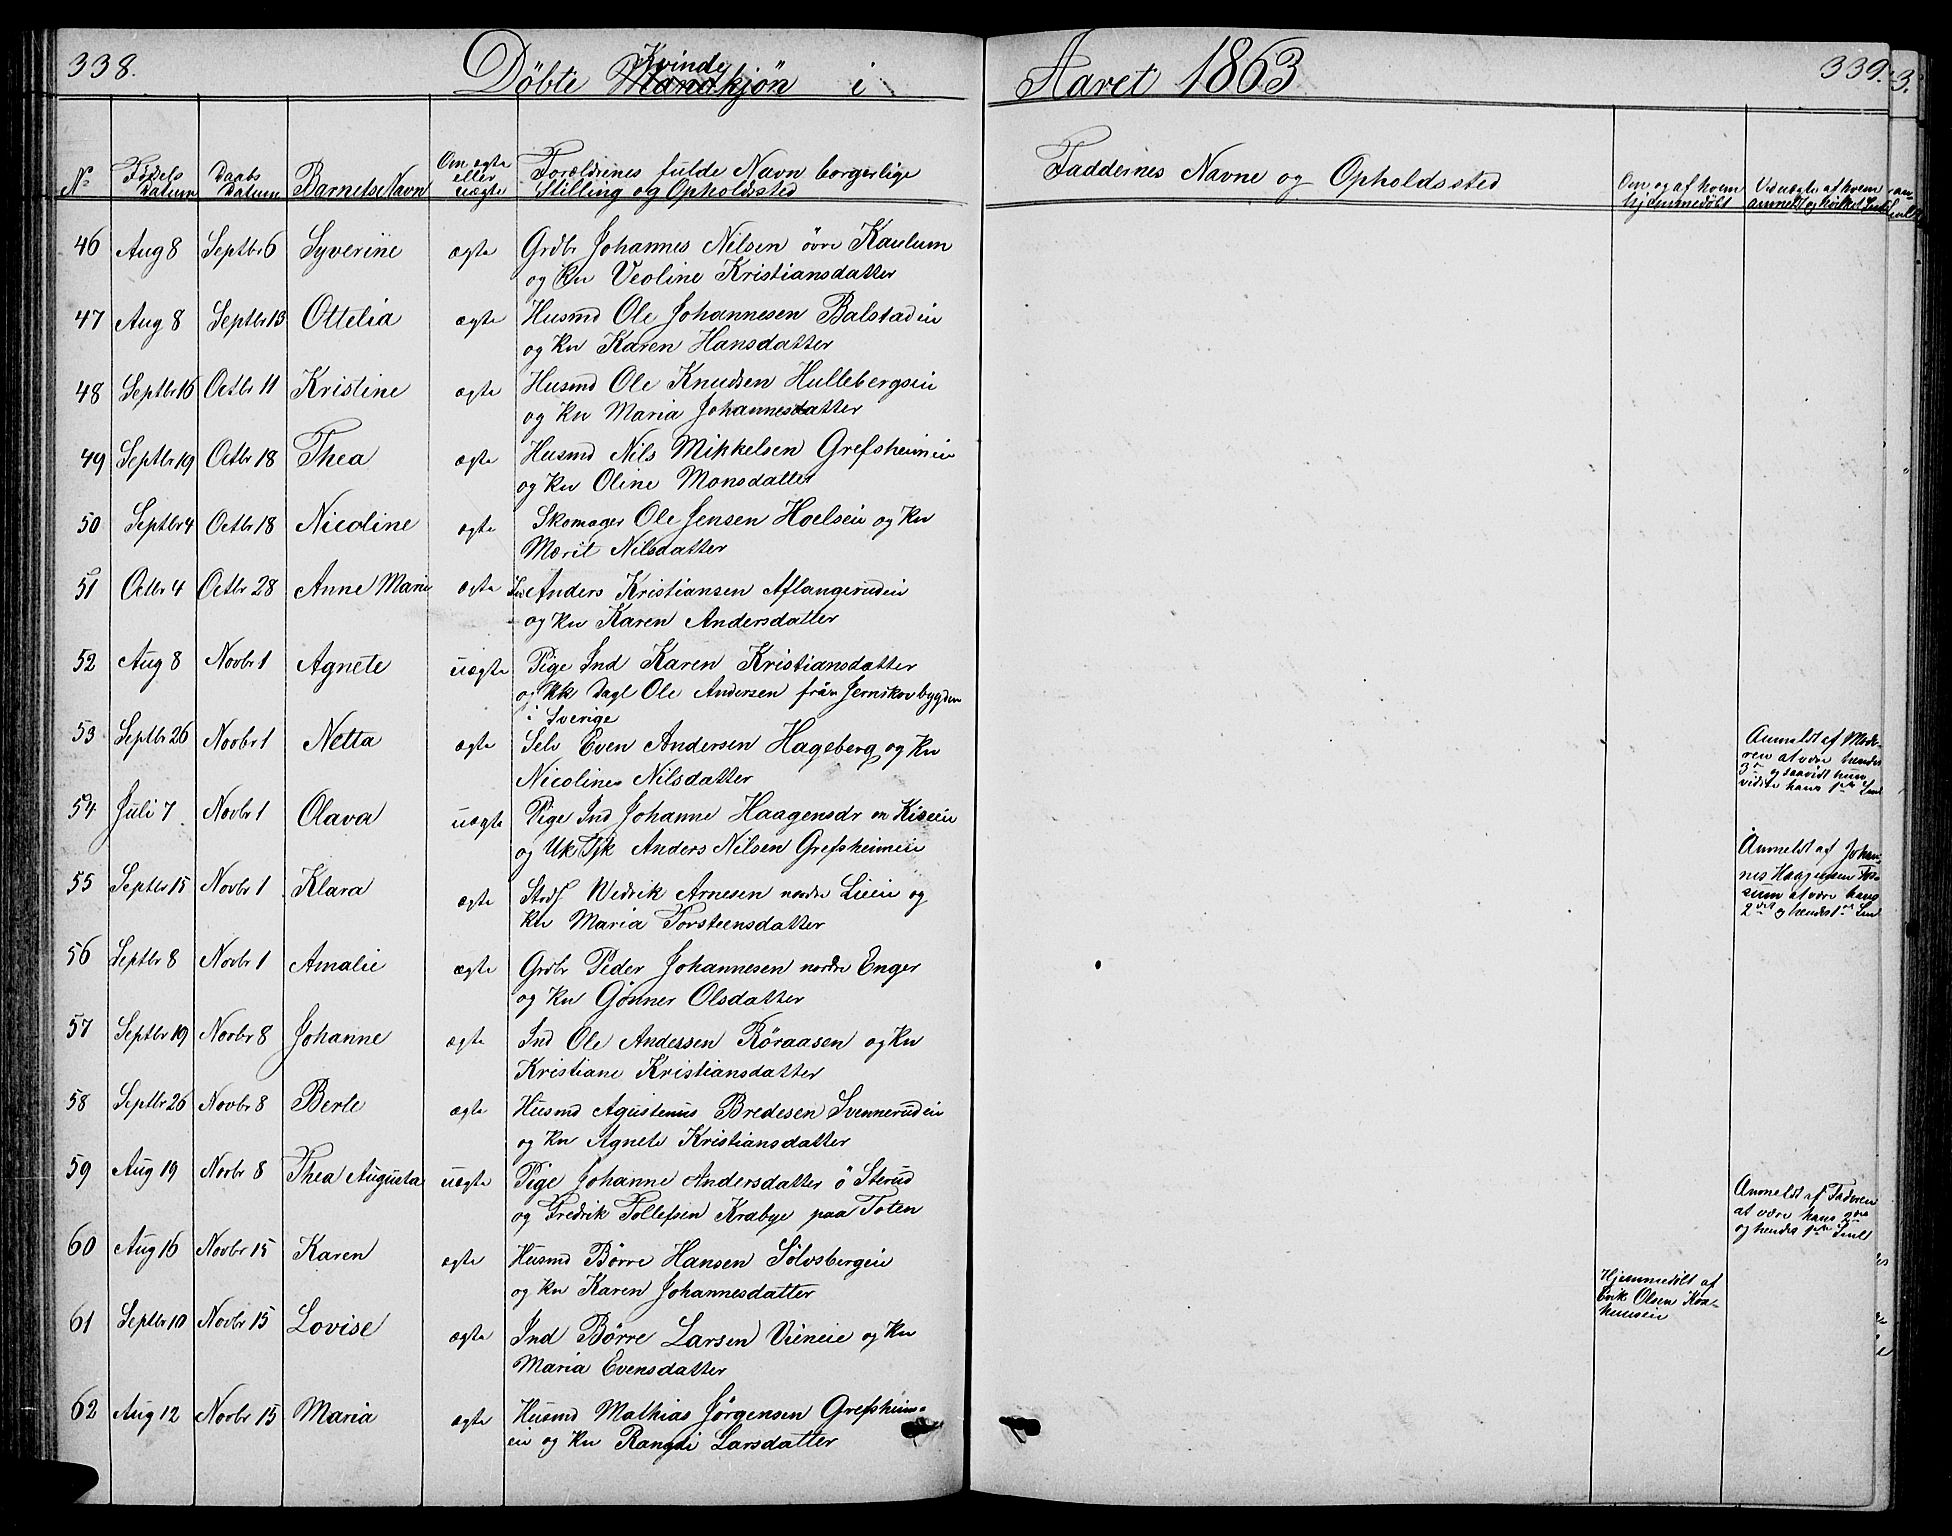 338.
Döbte Mandkjön i
Kvinde
Aaret 1863
339.
3.
No
Födsels Datum
Daabs Datum
Barnets Navn
Om ægte eller uægte
Forældrenes fulde Navn borgerlige Stilling og Opholdssted
Faddernes Navne og Opholdssted
Om og af hvem hjemmedöbt
Ved uægte af hvem anmeldt og hvilket
46 Aug 8 Septbr 6 Syverine ægte Grdbr Johannes Nilsen övre Kaulum
og Ku Veoline Kristiansdatter
47 Aug 8 Septbr 13 Ottelia ægte Husmd Ole Johannesen Balstadeie
og Ku Karen Hansdatter
48 Septbr 16 Octbr 11 Kristine ægte Husmd Ole Knudsen Hullebergseie
og Ku Maria Johannesdatter
49 Septbr 19 Octbr 18 Thea ægte Husmd Nils Mikkelsen Grefsheimeie
og Ku Oline Monsdatter
50 Septbr 4 Octbr 18 Nicoline ægte Skomager Ole Jensen Hoelseie og Ku
Marit Nilsdatter
51 Octbr 4 Octbr 28 Anne Marie ægte Ind Anders Kristiansen Aflangerudeie
og Ku Karen Andersdatter
52 Aug 8 Novbr 1 Agnete uægte Pige Ind Karen Kristiansdatter
og Uk Dagl Ole Andersen från Jernskovbygden
i Sverige
53 Septbr 26 Novbr 1 Netta ægte Selv Even Andersen Hageberg og Ku
Nicoline Nilsdatter
Anmeldt af Mode-
ren at være hendes
3. og saavidt hun
vidste hans 1ste
54 Juli 7 Novbr 1 Olava uægte Pige Ind Johanne Haagensdr en Kiseeie
og Uk Tjk Anders Nilsen Grefsheimeie
Anmeldt af Johan-
nes Haagensen
at være hans
2det og hendes 1
55 Septbr 15 Novbr 1 Klara ægte Wedrik Arnesen nordre Lieeie og
Ku Maria Torsteensdatter
56 Septbr 8 Novbr 1 Amalie ægte Grdbr Peder Johannesen nordre Enger
og Ku Gönner Olsdatter
57 Septbr 19 Novbr 8 Johanne ægte Ind Ole Andersen Röraasen og Ku
Kristiane Kristiansdatter
58 Septbr 26 Novbr 8 Berte ægte Husmd Agustenus Bredesen Svennerudeie
og Ku Agnete Kristiansdatter
59 Aug 19 Novbr 8 Thea Augusta uægte Pige Johanne Andersdatter ö Sterud
og Fredrik Tollefsen Krabye paa Toten
Anmeldt af Faderen
at være hans 2det
og hendes 1ste
60 Aug 16 Novbr 15 Karen ægte Husmd Börre Hansen Sölvsbergeie
og Ku Karen Johannesdatter
Hjemmedöbt af
Erik Olsen
61 Septbr 10 Novbr 15 Lovise ægte Ind Börre Larsen Vieneie og Ku
Maria Evensdatter
62 Aug 12 Novbr 15 Maria ægte Husmd Mathias Jörgensen Grefsheim-
eie og Ku Rangdi Larsdatter